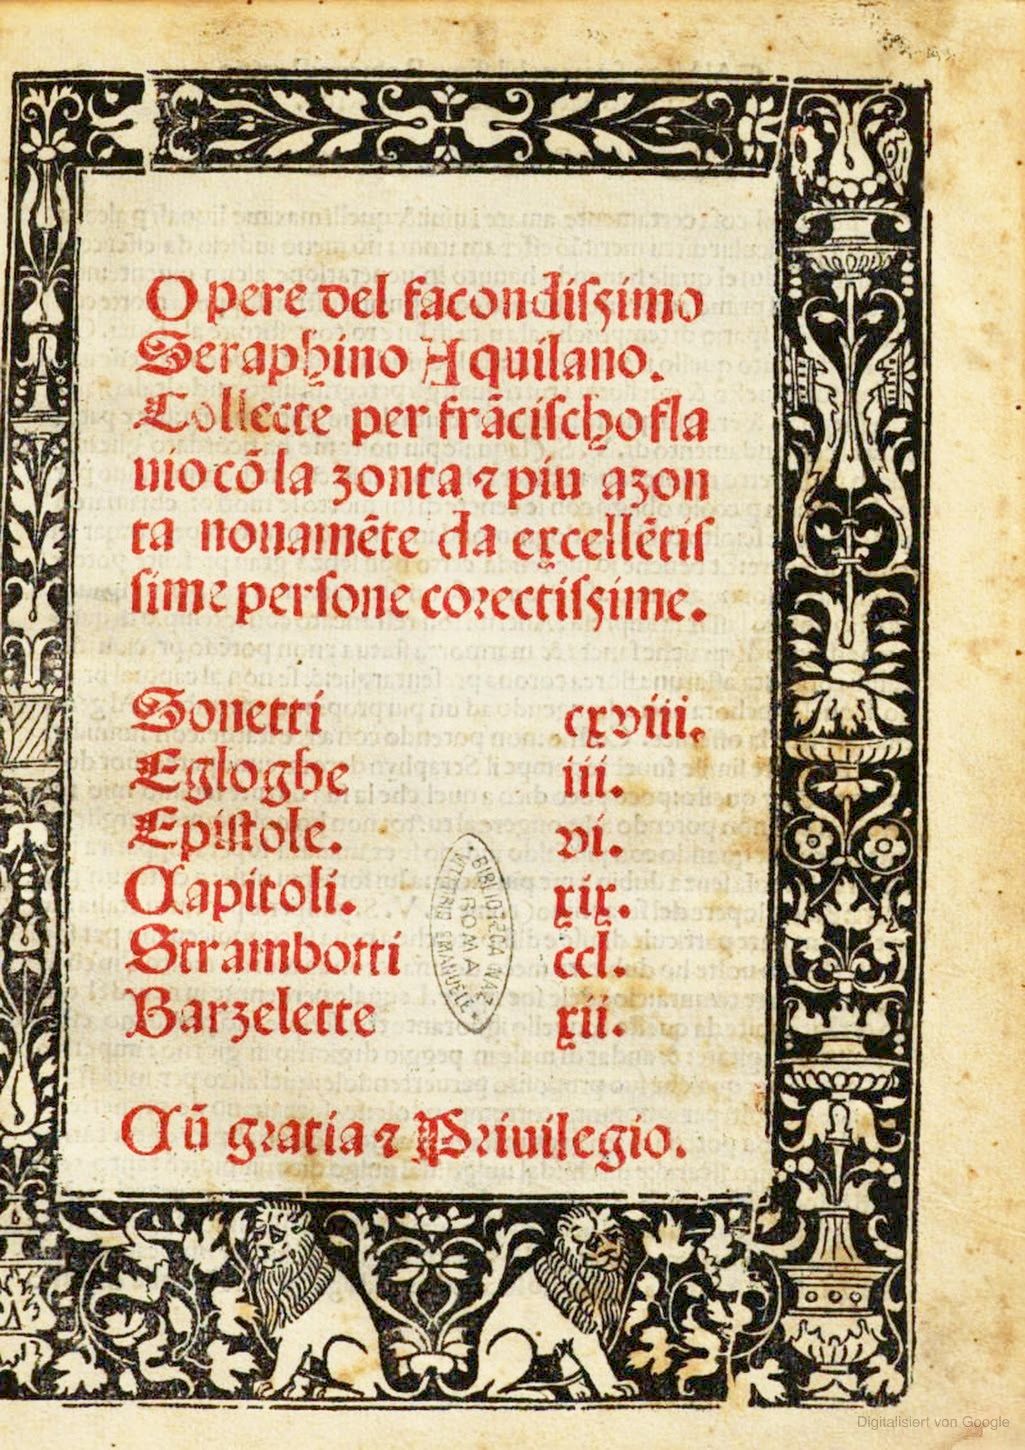 Opere del facondiſsimo
Seraphino Aquilano.
Collecte per frāciſcho fla
uio cō la zonta ⁊ piu azon
ta nouamēte da excellētiſ
ſime perſone corectiſsime.
Sonetti cxviii.
Egloghe iii.
Epiſtole. vi.
Capitoli. xix.
Strambotti ccl.
Barzelette xii.
Cū gratia ⁊ Priuilegio.
BIBLIOTECA NAZ.
ROMA
VITTORIO EMANUELE
Digitalisiert von Google